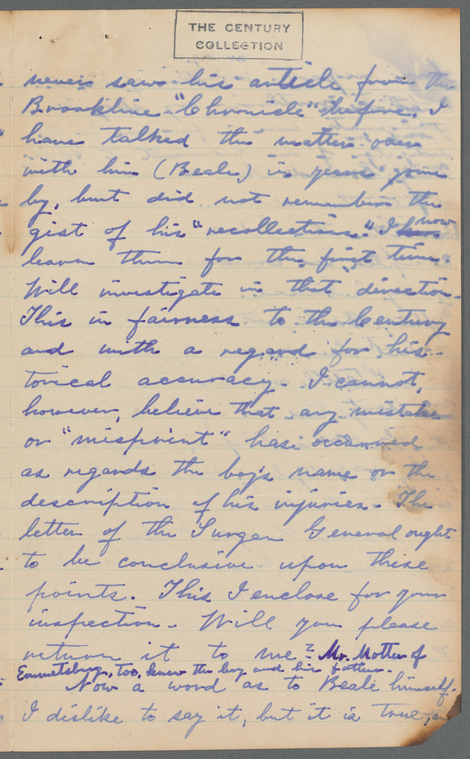 THE CENTURY
COLLECTION
never saw his article from the
Brookline "Chronicle" before. I
have talked the matter over
with him (Beale) in years gone
by, but did not remember the
gist of his "recollections." I now
learn them for the first time.
Will investigate in that direction.
This in fairness to the Century
and with a regard for his-
torical accuracy. I cannot,
however, believe that any mistake
or "misprint" has occurred
as regards the boy's name or the
description of his injuries. The
letter of the Surgeon General ought
to be conclusive upon these
points. This I enclose for your
inspection. Will you please
return it to me? Mr. Motter of
Emmetsburg, too, knew the boy and his father.
Now a word as to Beale himself.
I dislike to say it, but it is true,